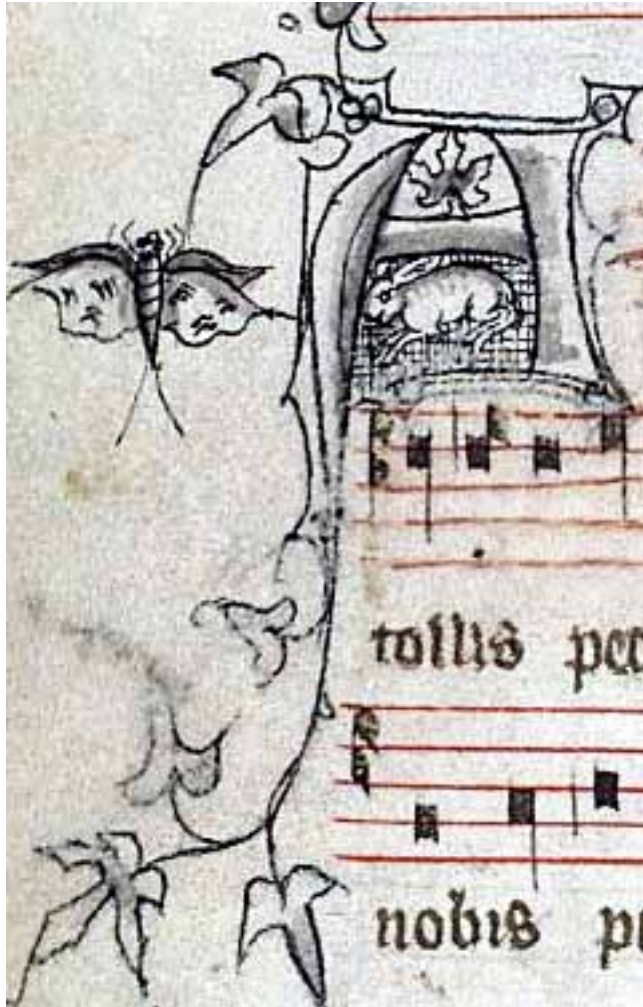 A
tollis pec
nobis p